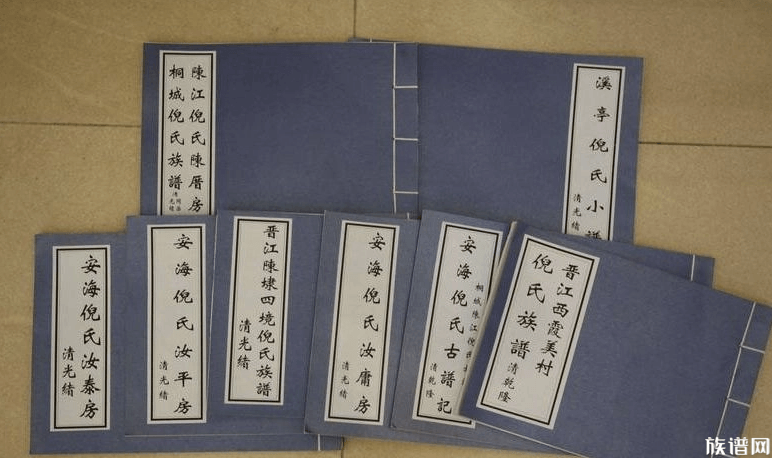 陳江倪氏陳厝房
桐城倪氏族譜
溪亭倪氏小譜
清光緒
安海倪氏汝泰房
清光緒
安海倪氏汝平房
清光緒
晋江陳埭四境倪氏族譜
清光緒
安海倪氏汝庸房
清光緒
安海倪氏古譜記
清乾隆
晋江西霞美村
倪氏族譜
清乾隆
族谱网